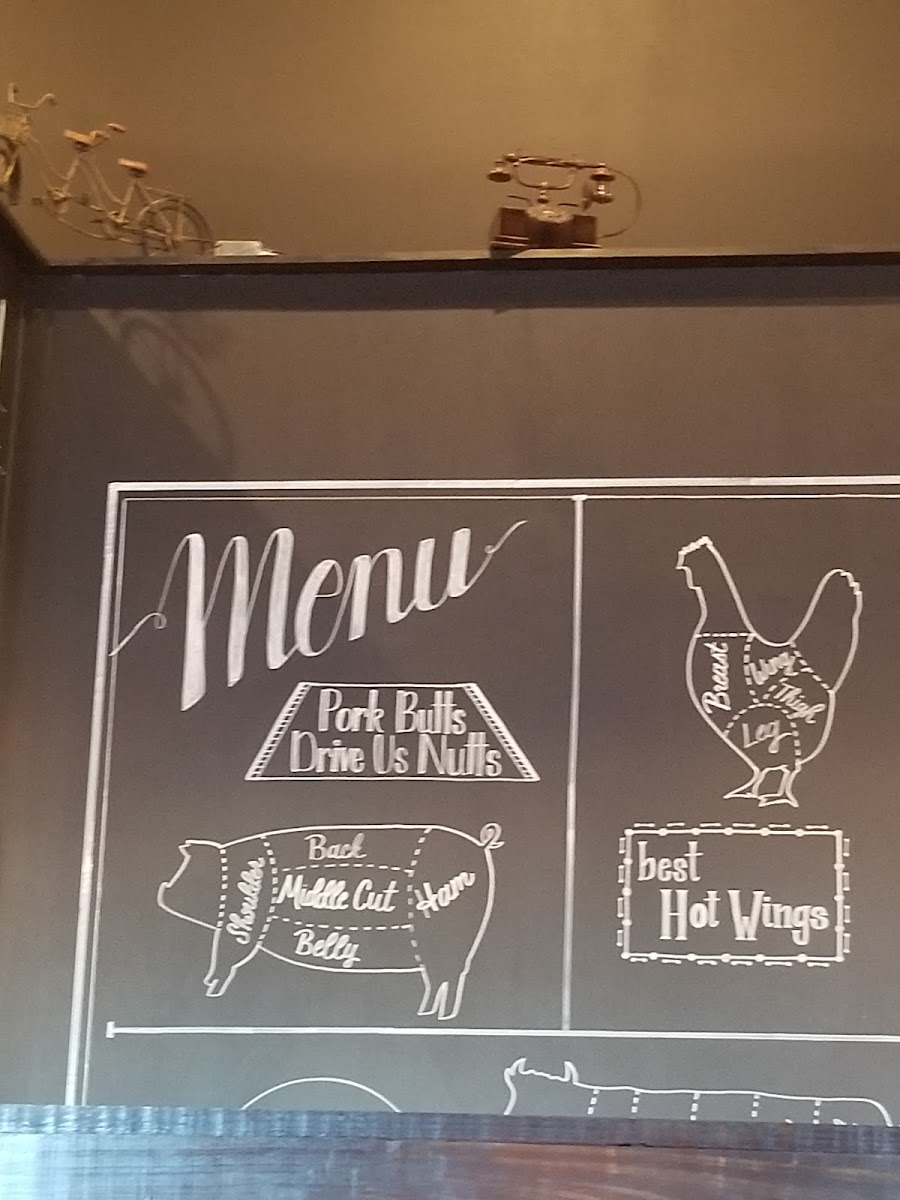 Menu
Pork Butts
Drive Us Nutts
Shoulder
Back
Middle Cut
Belly
Ham
Breast
Wing
Thigh
Leg
best
Hot Wings